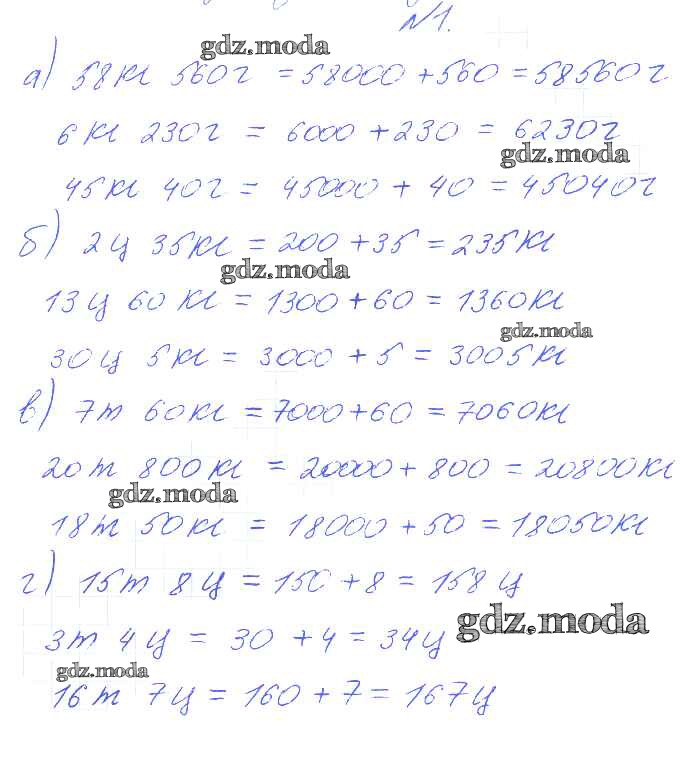 №1.
gdz.moda
а) 58кг 560г = 58000 + 560 = 58560г
6 кг 230г = 6000 + 230 = 6230г
gdz.moda
45кг 40г = 45000 + 40 = 45040г
б) 2ц 35кг = 200 + 35 = 235кг
gdz.moda
13ц 60 кг = 1300 + 60 = 1360кг
gdz.moda
30ц 5кг = 3000 + 5 = 3005кг
в) 7т 60кг = 7000 + 60 = 7060кг
20т 800кг = 20000 + 800 = 20800кг
gdz.moda
18т 50кг = 18000 + 50 = 18050кг
г) 15т 8ц = 150 + 8 = 158ц
gdz.moda
3т 4ц = 30 + 4 = 34ц
gdz.moda
16т 7ц = 160 + 7 = 167ц